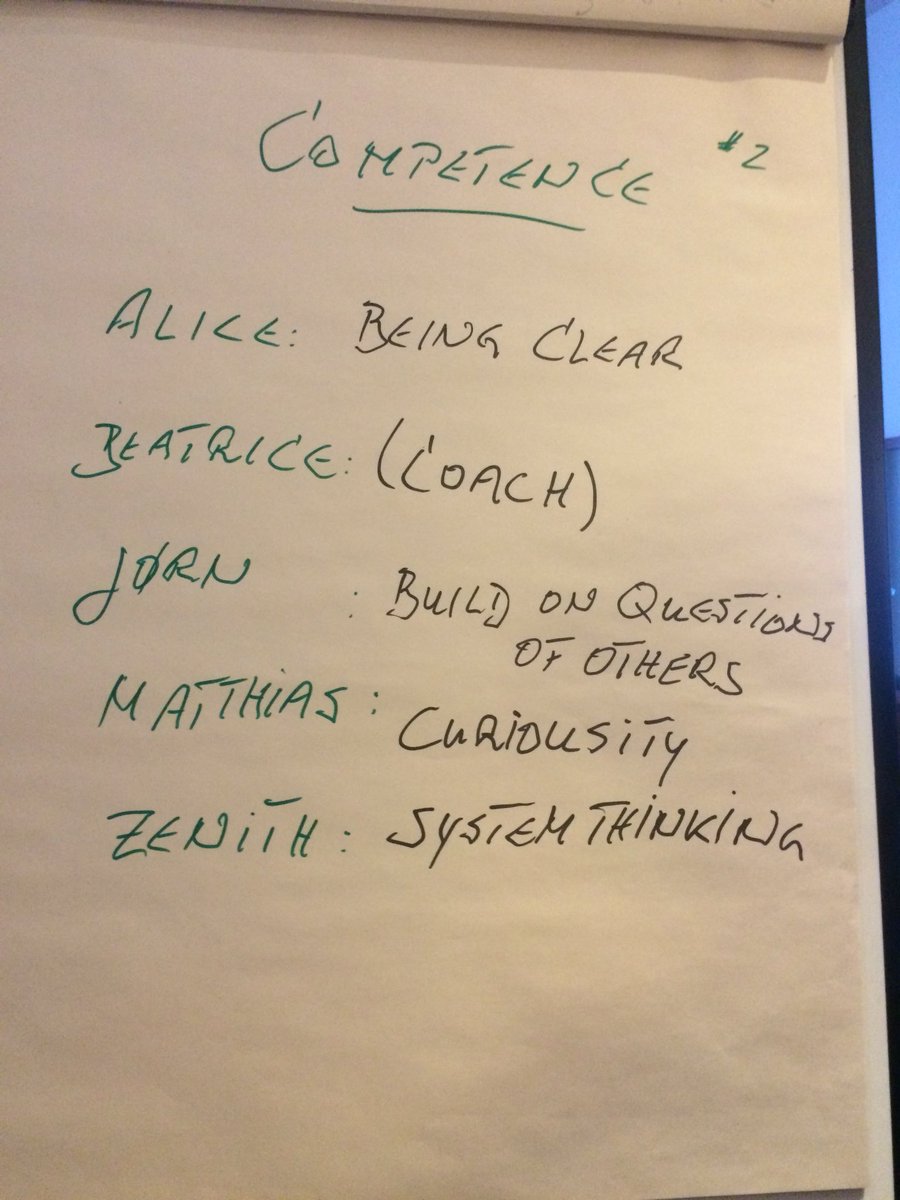 COMPETENCE #2
ALICE: BEING CLEAR
BEATRICE: (COACH)
JØRN : BUILD ON QUESTIONS
OF OTHERS
MATTHIAS: CURIOUSITY
ZENITH: SYSTEM THINKING